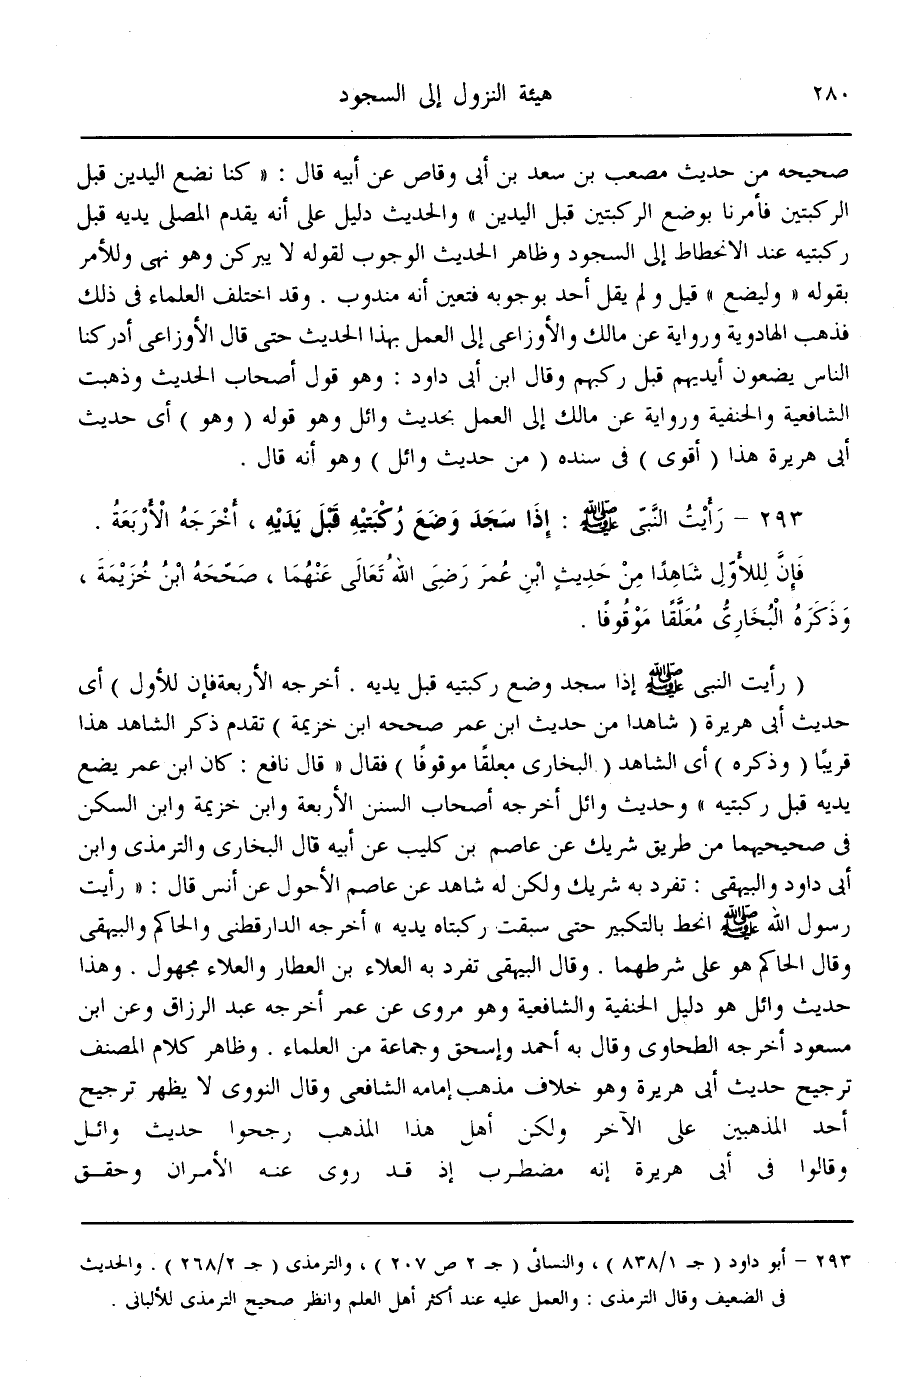 ٢٨٠ هيئة النزول إلى السجود
صحيحه من حديث مصعب بن سعد بن أبى وقاص عن أبيه قال : « كنا نضع اليدين قبل
الركبتين فأمرنا بوضع الركبتين قبل اليدين » والحديث دليل على أنه يقدم المصلى يديه قبل
ركبتيه عند الانحطاط إلى السجود وظاهر الحديث الوجوب لقوله لا يبركن وهو نهى وللأمر
بقوله « وليضع » قيل ولم يقل أحد بوجوبه فتعين أنه مندوب . وقد اختلف العلماء فى ذلك
فذهب الهادوية ورواية عن مالك والأوزاعى إلى العمل بهذا الحديث حتى قال الأوزاعى أدركنا
الناس يضعون أيديهم قبل ركبهم وقال ابن أبى داود : وهو قول أصحاب الحديث وذهبت
الشافعية والحنفية ورواية عن مالك إلى العمل بحديث وائل وهو قوله ( وهو ) أى حديث
أبى هريرة هذا ( أقوى ) فى سنده ( من حديث وائل ) وهو أنه قال .
٢٩٣ – رَأَيْتُ النَّبِىَّ ﷺ : إِذَا سَجَدَ وَضَعَ رُكْبَتَيْهِ قَبْلَ يَدَيْهِ ، أَخْرَجَهُ الْأَرْبَعَةُ .
فَإِنَّ لِلأَوَّلِ شَاهِدًا مِنْ حَدِيثِ ابْنِ عُمَرَ رَضِىَ اللهُ تَعَالَى عَنْهُمَا ، صَحَّحَهُ ابْنُ خُزَيْمَةَ ،
وَذَكَرَهُ الْبُخَارِىُّ مُعَلَّقًا مَوْقُوفًا .
( رأيت النبى ﷺ إذا سجد وضع ركبتيه قبل يديه . أخرجه الأربعة فإن للأول ) أى
حديث أبى هريرة ( شاهدا من حديث ابن عمر صححه ابن خزيمة ) تقدم ذكر الشاهد هذا
قريبًا ( وذكره ) أى الشاهد ( البخارى معلقًا موقوفًا ) فقال « قال نافع : كان ابن عمر يضع
يديه قبل ركبتيه » وحديث وائل أخرجه أصحاب السنن الأربعة وابن خزيمة وابن السكن
فى صحيحيهما من طريق شريك عن عاصم بن كليب عن أبيه قال البخارى والترمذى وابن
أبى داود والبيهقى : تفرد به شريك ولكن له شاهد عن عاصم الأحول عن أنس قال : « رأيت
رسول الله ﷺ انحط بالتكبير حتى سبقت ركبتاه يديه » أخرجه الدارقطنى والحاكم والبيهقى
وقال الحاكم هو على شرطهما . وقال البيهقى تفرد به العلاء بن العطار والعلاء مجهول . وهذا
حديث وائل هو دليل الحنفية والشافعية وهو مروى عن عمر أخرجه عبد الرزاق وعن ابن
مسعود أخرجه الطحاوى وقال به أحمد وإسحق وجماعة من العلماء . وظاهر كلام المصنف
ترجيح حديث أبى هريرة وهو خلاف مذهب إمامه الشافعى وقال النووى لا يظهر ترجيح
أحد المذهبين على الآخر ولكن أهل هذا المذهب رجحوا حديث وائل
وقالوا فى أبى هريرة إنه مضطرب إذ قد روى عنه الأمران وحقق
٢٩٣ – أبو داود ( جـ ٨٣٨/١ ) ، والنسائى ( جـ ٢ ص ٢٠٧ ) ، والترمذى ( جـ ٢٦٨/٢ ) . والحديث
فى الضعيف وقال الترمذى : والعمل عليه عند أكثر أهل العلم وانظر صحيح الترمذى للألبانى .